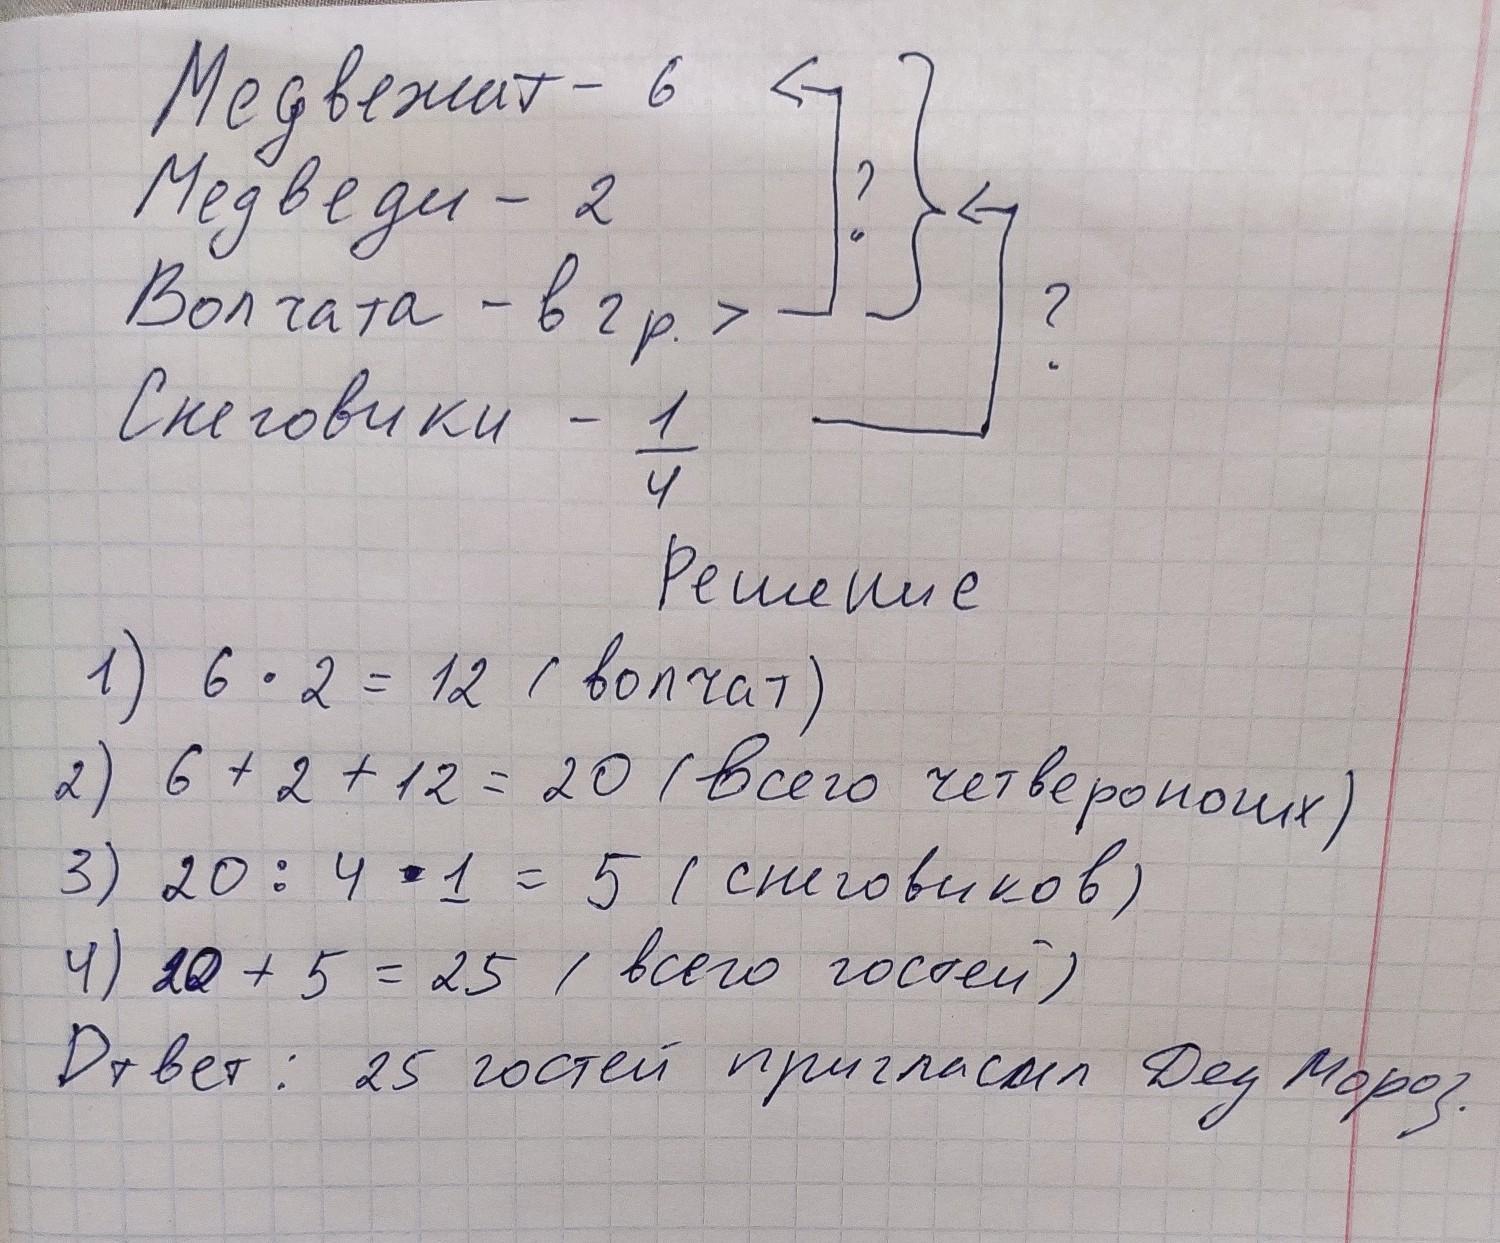 Медвежат - 6
Медведи - 2 ?
Волчата - в 2 р. > ?
Снеговики - 1/4
Решение
1) 6 · 2 = 12 (волчат)
2) 6 + 2 + 12 = 20 (всего четвероногих)
3) 20 : 4 · 1 = 5 (снеговиков)
4) 20 + 5 = 25 (всего гостей)
Ответ: 25 гостей пригласил Дед Мороз.